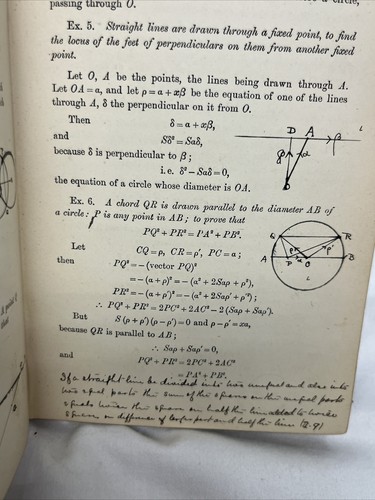 passing through O.
Ex. 5. Straight lines are drawn through a fixed point, to find
the locus of the feet of perpendiculars on them from another fixed
point.
Let O, A be the points, the lines being drawn through A.
Let OA = α, and let ρ = α + xβ, be the equation of one of the lines
through A, δ the perpendicular on it from O.
Then
δ = α + xβ,
and
Sδ² = Sαδ,
because δ is perpendicular to β;
i.e. δ² − Sαδ = 0,
the equation of a circle whose diameter is OA.
D A β
α
Ex. 6. A chord QR is drawn parallel to the diameter AB of
a circle: P is any point in AB; to prove that
PQ² + PR² = PA² + PB².
Let CQ = ρ, CR = ρ', PC = α;
then PQ² = − (vector PQ)²
= − (α + ρ)² = − (α² + 2Sαρ + ρ²),
PR² = − (α + ρ')² = − (α² + 2Sαρ' + ρ'²);
∴ PQ² + PR² = 2PC² + 2AC² − 2 (Sαρ + Sαρ').
But S (ρ + ρ') (ρ − ρ') = 0 and ρ − ρ' = xα,
because QR is parallel to AB;
∴ Sαρ + Sαρ' = 0,
and PQ² + PR² = 2PC² + 2AC²
= PA² + PB².
Q R
A P B
If a straight line be divided into two unequal and also into
two equal parts the sum of the squares on the unequal parts
equals twice the square on half the line added to twice
square on difference of larger part and half the line (2.9)